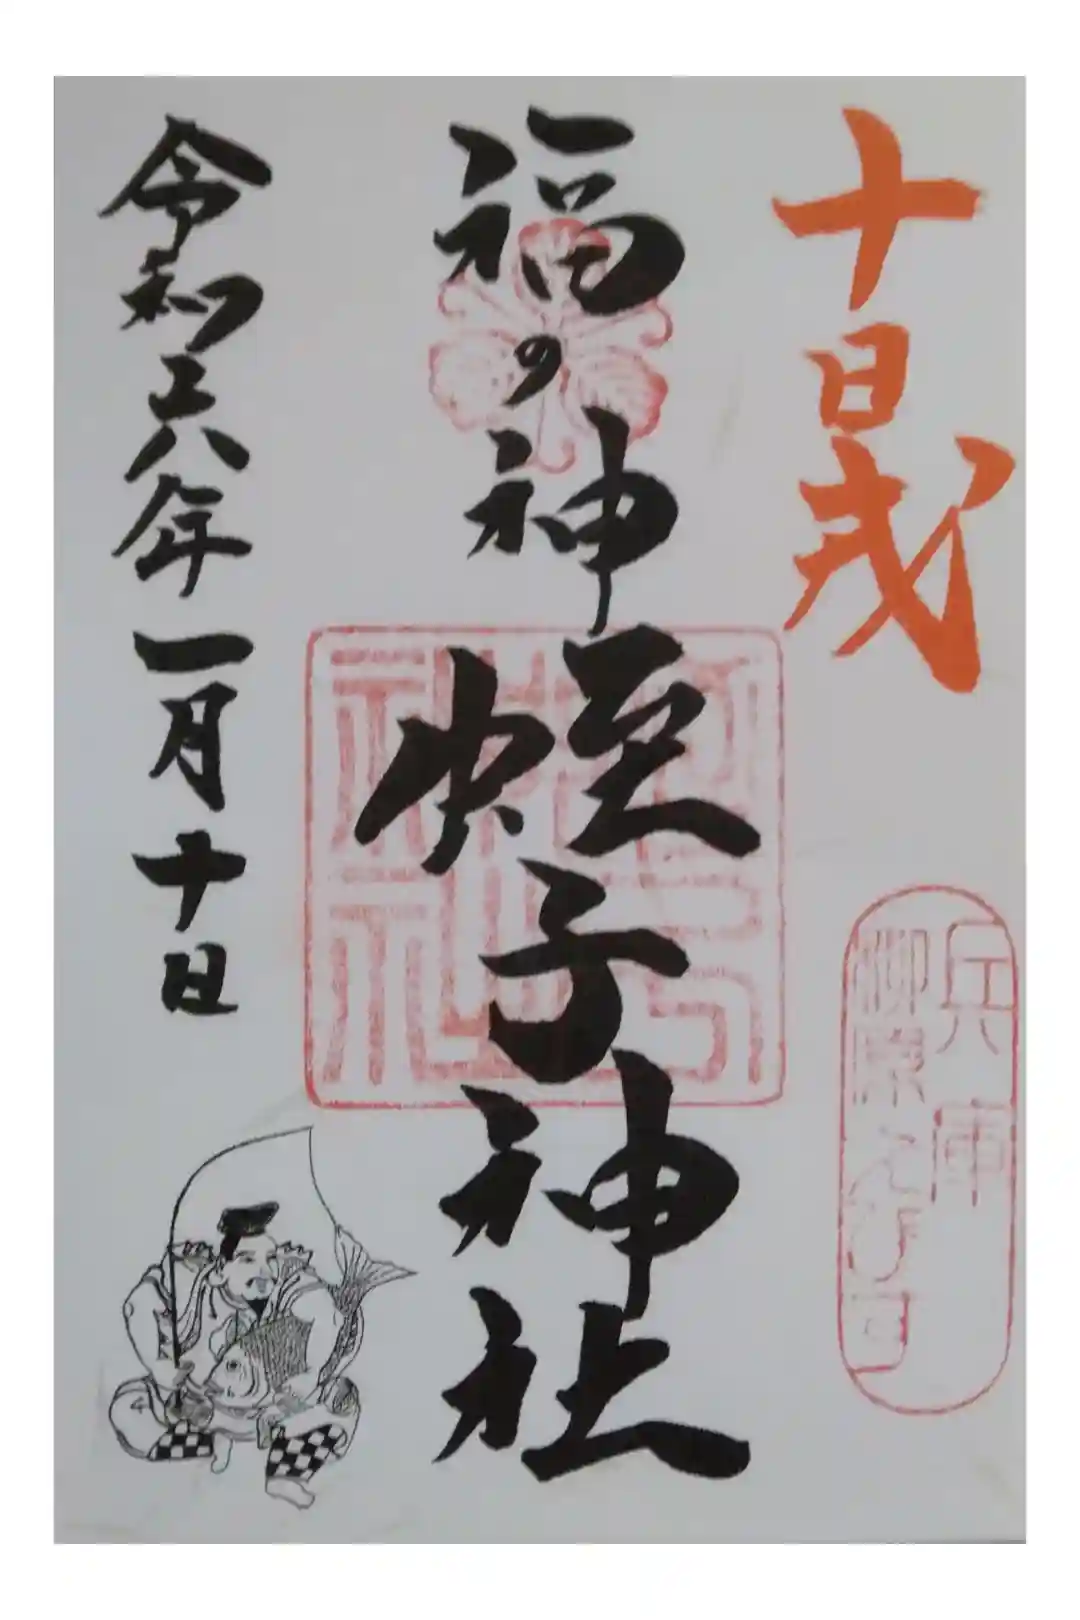 十日戎
兵庫
柳原えびす
福の神
蛭子神社
令和六年一月十日